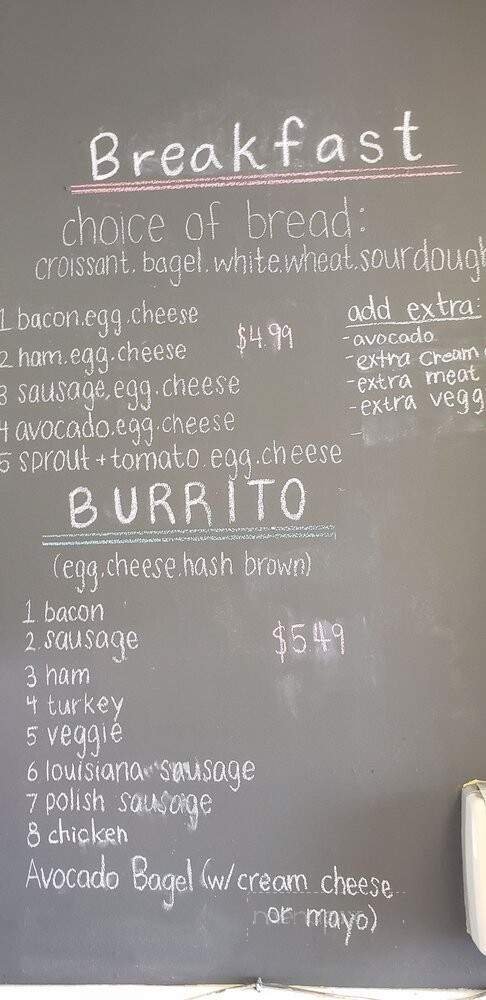 Breakfast
choice of bread:
croissant.bagel.white.wheat.sourdough
1 bacon.egg.cheese
2 ham.egg.cheese
3 sausage.egg.cheese
4 avocado.egg.cheese
5 sprout+tomato.egg.cheese
$4.99
add extra:
-avocado
-extra cream
-extra meat
-extra vegg
-
BURRITO
(egg.cheese.hash brown)
1 bacon
2 sausage
3 ham
4 turkey
5 veggie
6 louisiana sausage
7 polish sausage
8 chicken
$5.49
Avocado Bagel (w/cream cheese
or mayo)